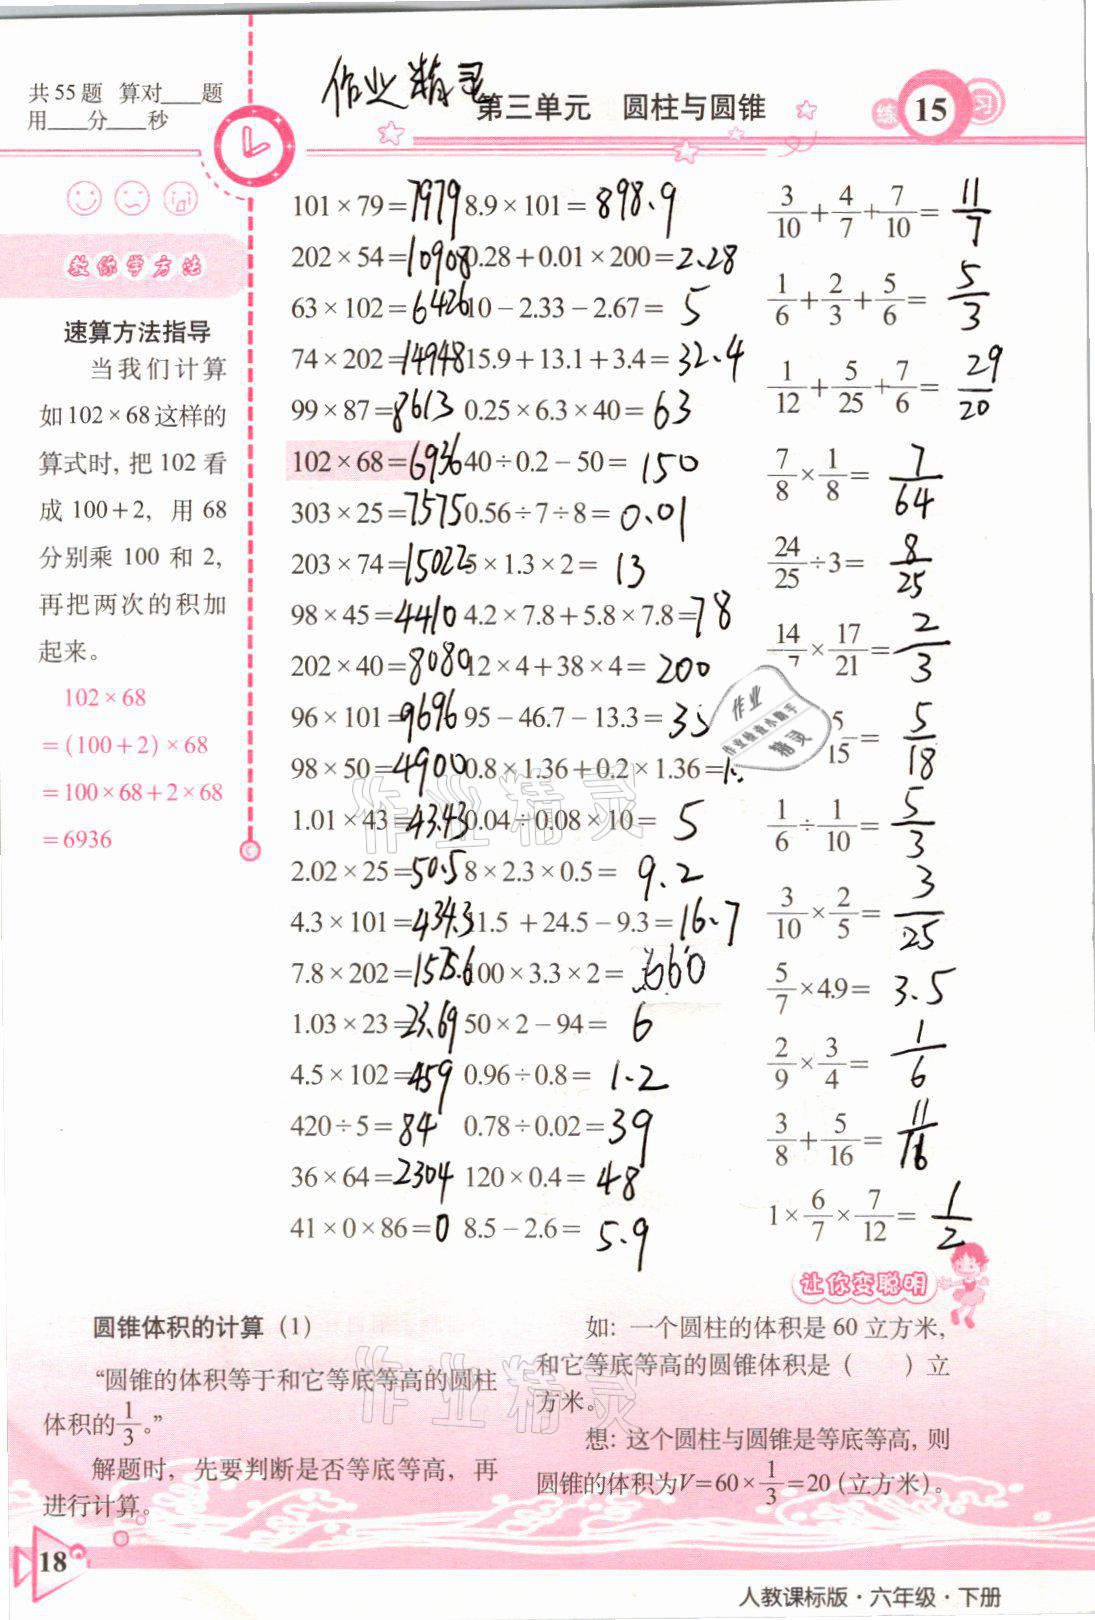 共55题 算对____题
用____分____秒
作业精灵
第三单元 圆柱与圆锥
练 15 习
教你学方法
速算方法指导
当我们计算
如102×68这样的
算式时,把102看
成100+2,用68
分别乘100和2,
再把两次的积加
起来。
102×68
=(100+2)×68
=100×68+2×68
=6936
101×79=7979
202×54=10908
63×102=6426
74×202=14948
99×87=8613
102×68=6936
303×25=7575
203×74=15022
98×45=4410
202×40=8080
96×101=9696
98×50=4900
1.01×43=43.43
2.02×25=50.5
4.3×101=434.3
7.8×202=1575.6
1.03×23=23.69
4.5×102=459
420÷5=84
36×64=2304
41×0×86=0
8.9×101=898.9
0.28+0.01×200=2.28
10-2.33-2.67=5
15.9+13.1+3.4=32.4
0.25×6.3×40=63
40÷0.2-50=150
0.56÷7÷8=0.01
5×1.3×2=13
4.2×7.8+5.8×7.8=78
12×4+38×4=200
95-46.7-13.3=35
0.8×1.36+0.2×1.36=1.
0.04÷0.08×10=5
8×2.3×0.5=9.2
1.5+24.5-9.3=16.7
100×3.3×2=660
50×2-94=6
0.96÷0.8=1.2
0.78÷0.02=39
120×0.4=48
8.5-2.6=5.9
3/10+4/7+7/10=11/7
1/6+2/3+5/6=5/3
1/12+5/25+7/6=29/20
7/8×1/8=7/64
24/25÷3=8/25
14/7×17/21=2/3
5/15=5/18
1/6÷1/10=5/3
3/10×2/5=3/25
5/7×4.9=3.5
2/9×3/4=1/6
3/8+5/16=11/16
1×6/7×7/12=1/2
作业
作业检查小助手
精灵
作业精灵
让你变聪明
圆锥体积的计算(1)
“圆锥的体积等于和它等底等高的圆柱
体积的1/3。”
解题时,先要判断是否等底等高,再
进行计算。
如:一个圆柱的体积是60立方米,
和它等底等高的圆锥体积是( )立
方米。
想:这个圆柱与圆锥是等底等高,则
圆锥的体积为V=60×1/3=20(立方米)。
作业精灵
18
人教课标版·六年级·下册